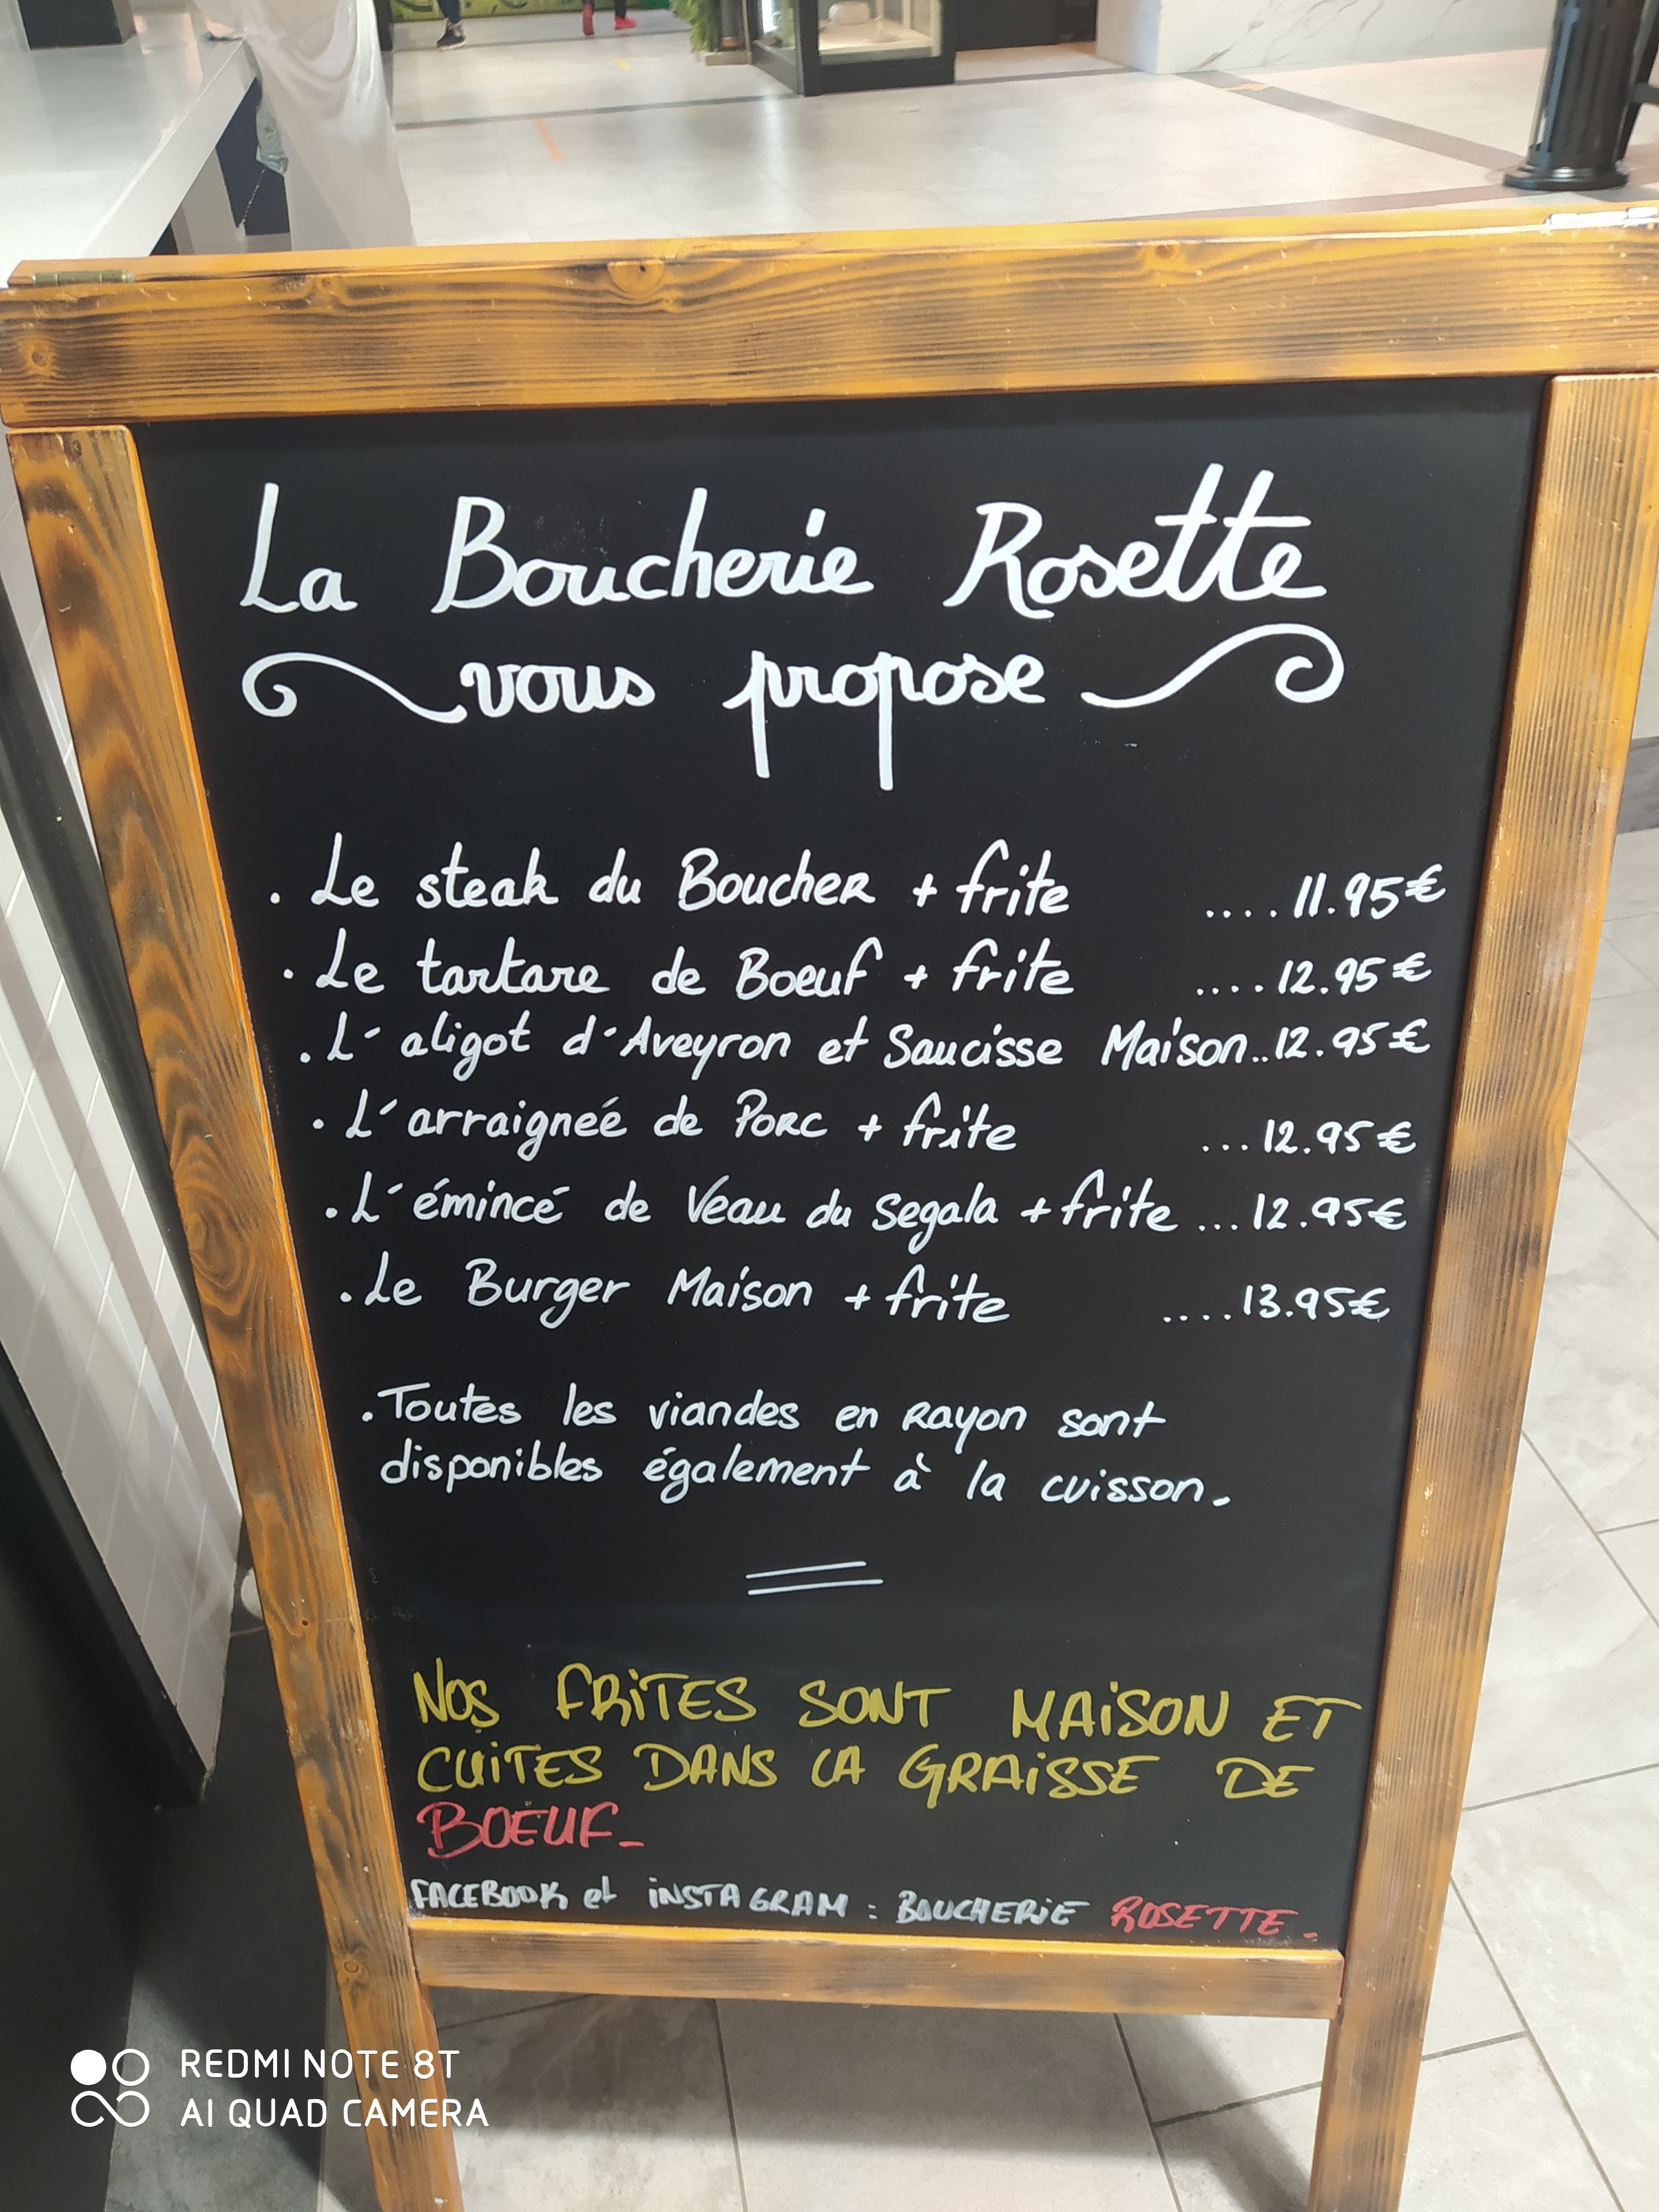 La Boucherie Rosette
vous propose
. Le steak du Boucher + frite .... 11.95€
. Le tartare de Boeuf + frite .... 12.95€
. L' aligot d'Aveyron et Saucisse Maison..12.95€
. L'arraigneé de Porc + frite ... 12.95€
. L'émincé de Veau du Segala + frite ... 12.95€
. Le Burger Maison + frite .... 13.95€
. Toutes les viandes en Rayon sont
disponibles également à la cuisson.
NOS FRITES SONT MAISON ET
CUITES DANS LA GRAISSE DE
BOEUF_
FACEBOOK et INSTAGRAM : BOUCHERIE ROSETTE.
REDMI NOTE 8T
AI QUAD CAMERA